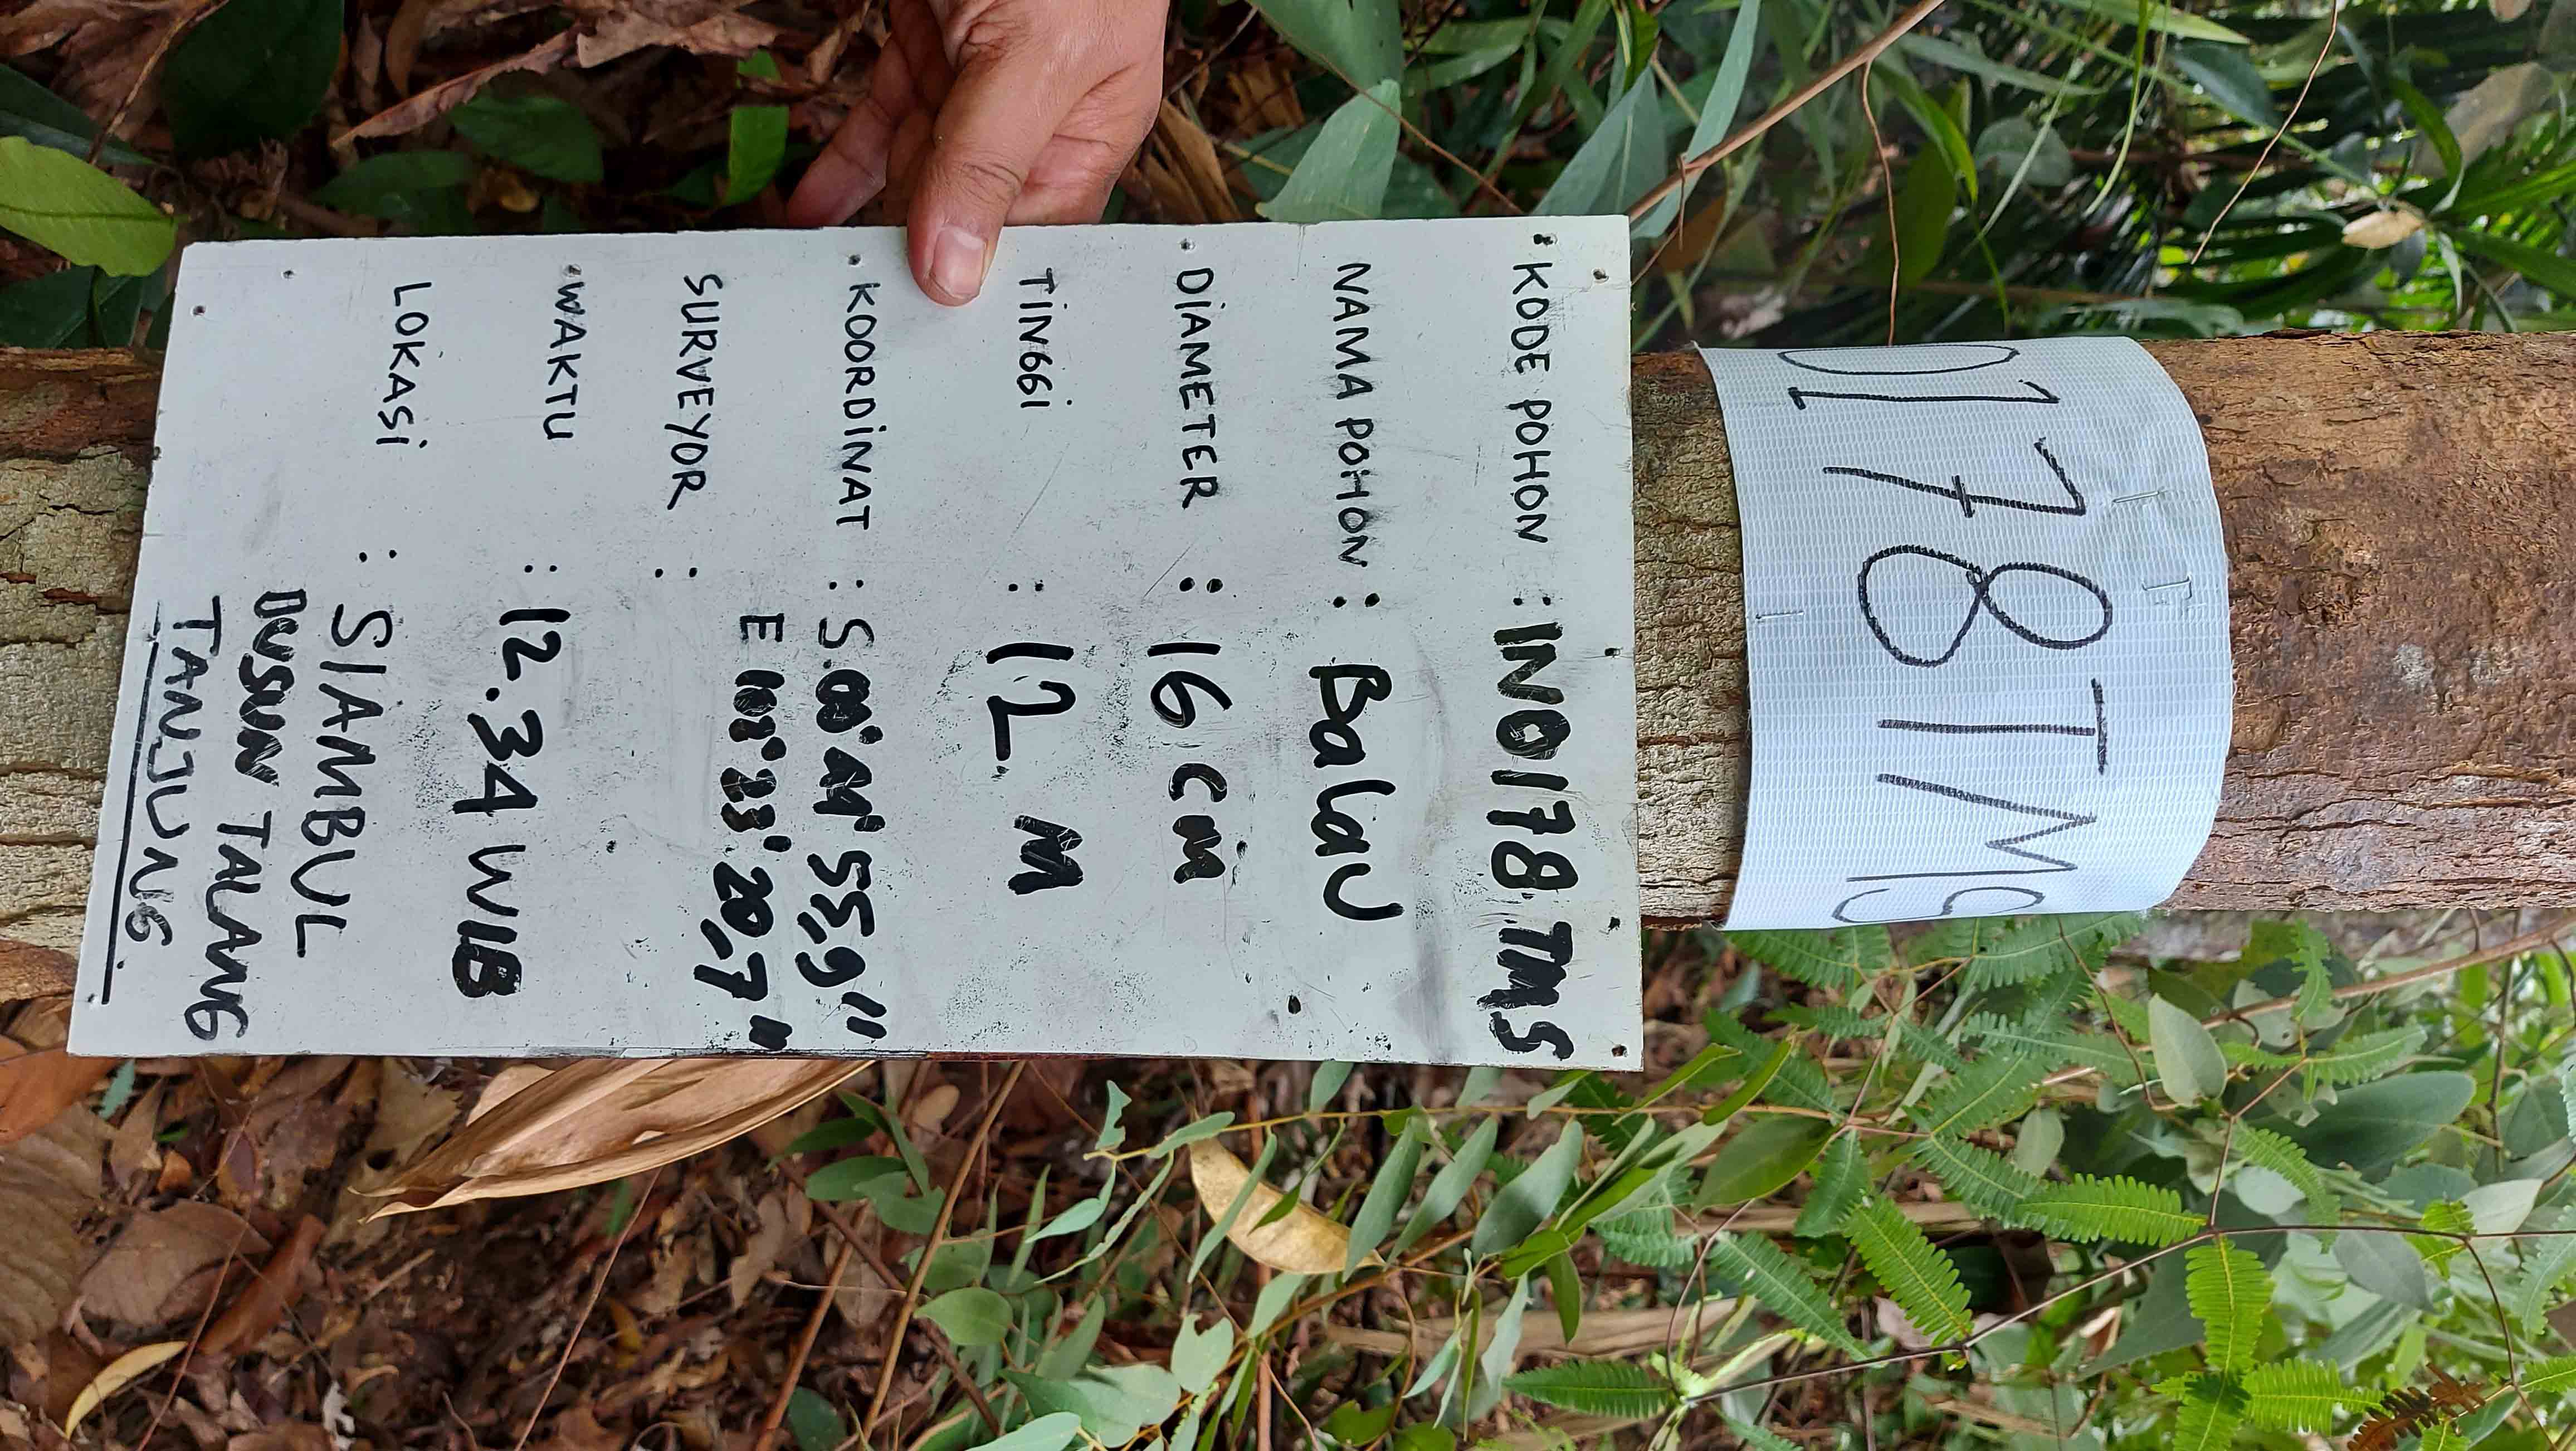 KODE POHON : IN0178 TMS
NAMA POHON : Balau
DIAMETER : 16 cm
TINGGI : 12 M
KOORDINAT : S.00° 44' 55,9"
E 102° 33' 20,7"
SURVEYOR :
WAKTU : 12.34 WIB
LOKASI : SIAMBUL
DUSUN TALANG
TANJUNG.
0178TMS